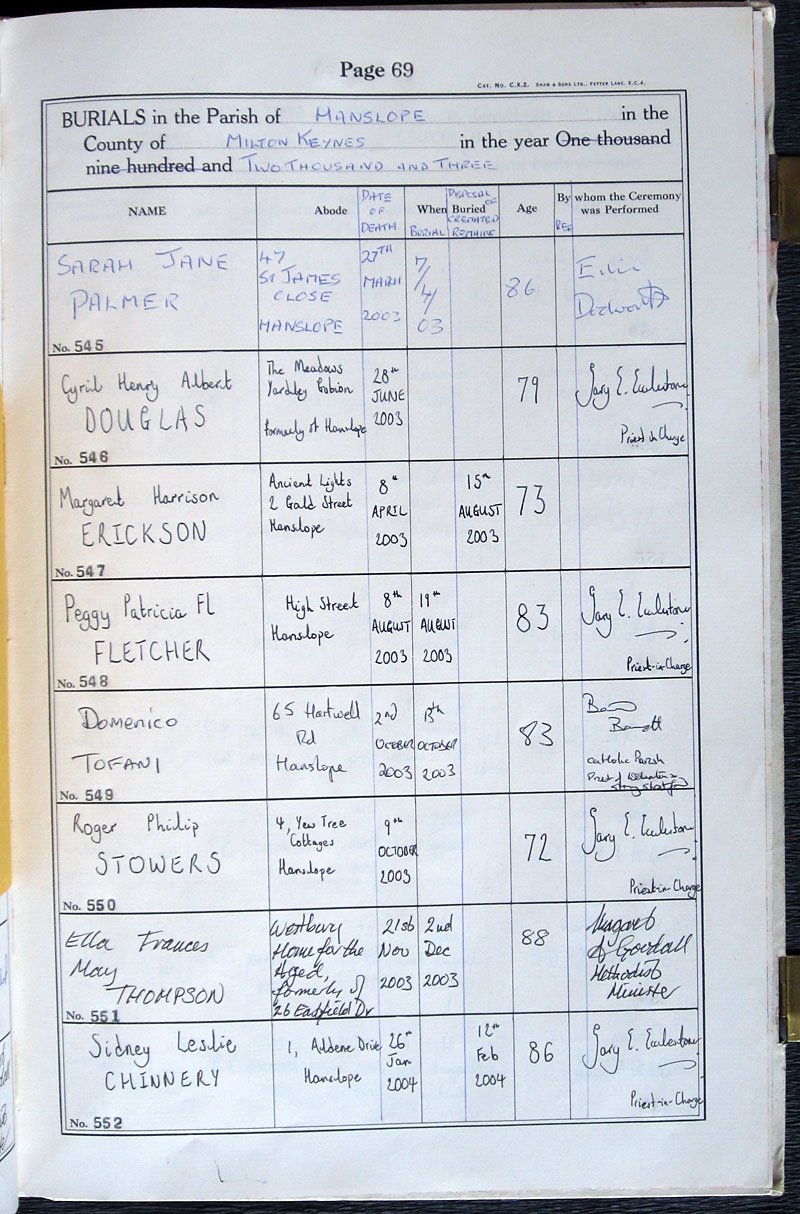 Page 69
CAT. No. C.X.2. SHAW & SONS LTD., FETTER LANE, E.C.4.
BURIALS in the Parish of HANSLOPE in the
County of MILTON KEYNES in the year One thousand
nine hundred and TWO THOUSAND AND THREE
NAME Abode DATE OF DEATH When Buried BURIAL DISPOSAL OF CREMATED REMAINS Age By whom the Ceremony was Performed REF
SARAH JANE
PALMER
No. 545
47
ST JAMES
CLOSE
HANSLOPE
27TH
MARH
2003
7/
4/
03
86
Cyril Henry Albert
DOUGLAS
No. 546
The Meadows
Yardley Gobion
formerly of Hanslope
28th
JUNE
2003
79
Gary E. Ecclestone
Priest in Charge
Margaret Harrison
ERICKSON
No. 547
Ancient Lights
2 Gold Street
Hanslope
8th
APRIL
2003
15th
AUGUST
2003
73
Peggy Patricia Fl
FLETCHER
No. 548
High Street
Hanslope
8th
AUGUST
2003
19th
AUGUST
2003
83
Gary E. Ecclestone
Priest-in-Charge
Domenico
TOFANI
No. 549
65 Hartwell
Rd
Hanslope
2nd
OCTOBER
2003
OCTOBER
2003
83
Barrett
Catholic Parish
Priest of
Roger Philip
STOWERS
No. 550
4, Yew Tree
Cottages
Hanslope
9th
OCTOBER
2003
72
Gary E. Ecclestone
Priest-in-Charge
Ella Frances
May
THOMPSON
No. 551
Westbury
Home for the
Aged,
formerly of
26 Eastfield Dr
21st
Nov
2003
2nd
Dec
2003
88
Margaret
A Goodall
Methodist
Minister
Sidney Leslie
CHINNERY
No. 552
1, Aldene Drive
Hanslope
26th
Jan
2004
12th
Feb
2004
86
Gary E. Ecclestone
Priest-in-Charge